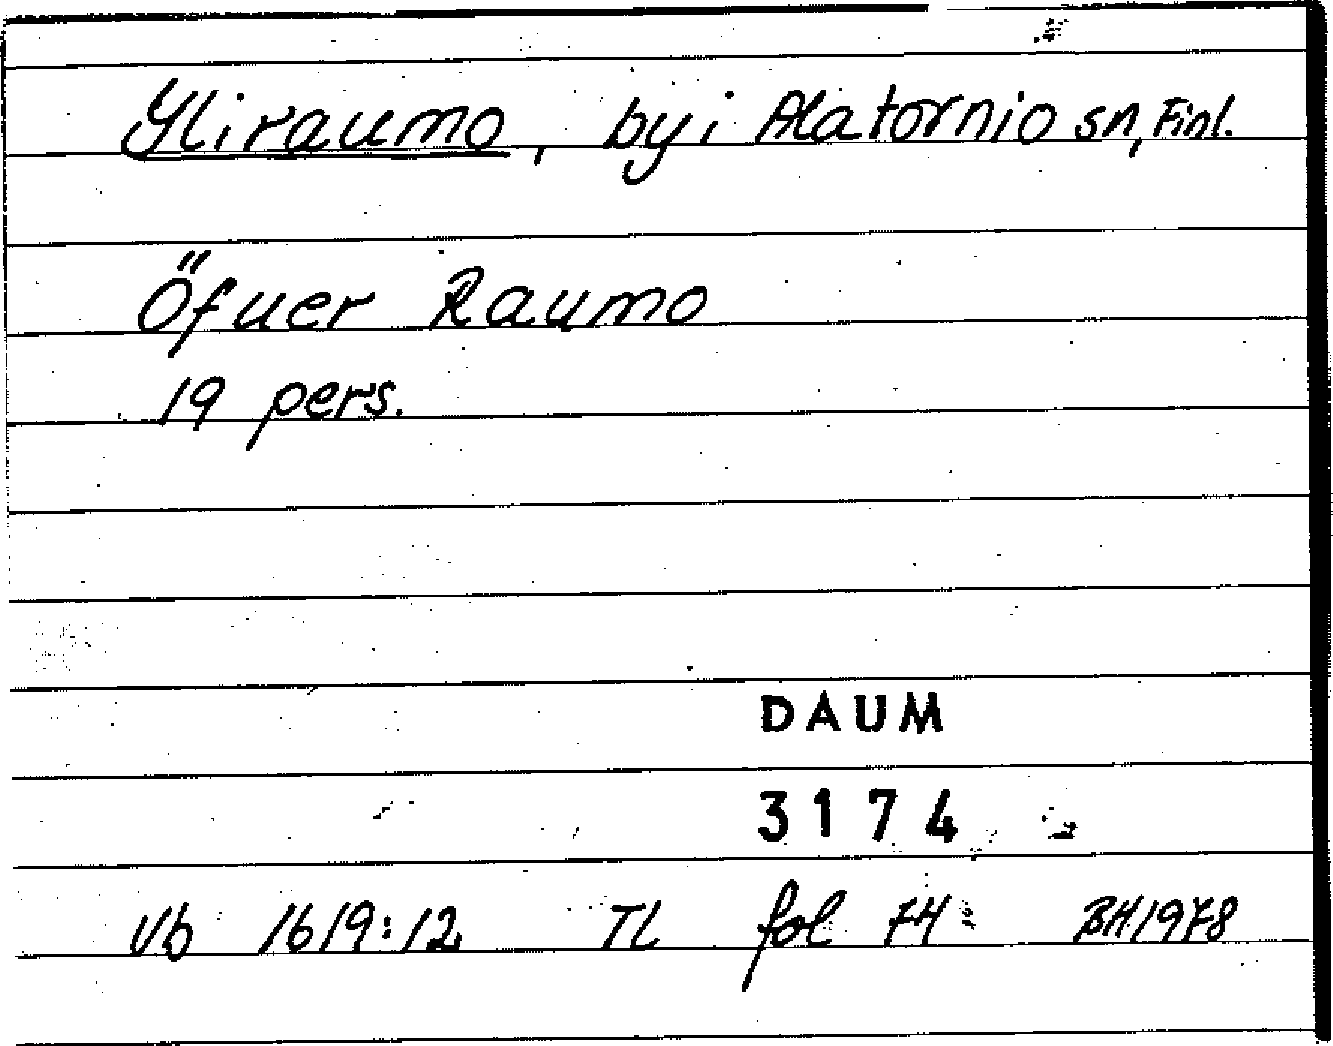 Yliraumo, by i Alatornio sn, Finl.
Öfuer Raumo
19 pers.
DAUM
3174
Vb 1619:12 TL fol 74 BH 1978